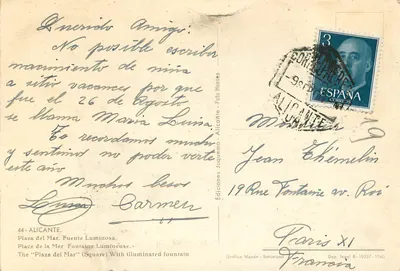 Querido Amigo:
No posible escribir
nacimiento de niña
a sitio vacances por que
fue el 26 de Agosto
se llama María Luisa.
Te recordamos mucho
y sentimos no poder verte
este año
Muchos besos
Luisa Carmen
68 - ALICANTE.
Plaza del Mar. Fuente Luminosa.
Place de la Mer. Fontaine Lumineuse.-
The "Plaza del Mar" (Square) With illuminated fountain
Ediciones Alicante - Foto
3
PTAS
ESPAÑA
CORREOS
ALICANTE
19
Jean Thémelin
19 Rue Fontaine av. Roi
Paris XI
Francia